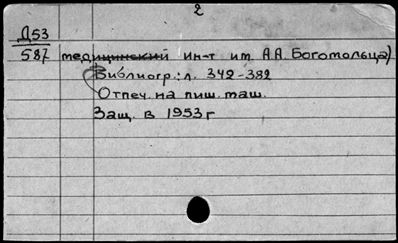 2
Д53
587 медицинский ин-т им. А.А. Богомольца)
Библиогр.: л. 342-382
Отпеч. на пиш. маш.
Защ. в 1953 г